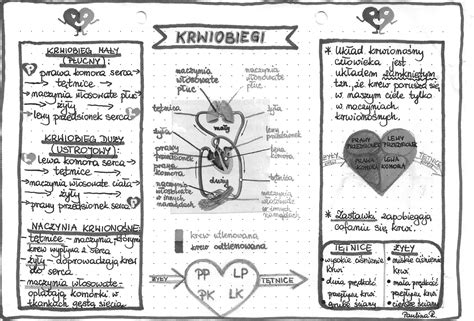 KRWIOBIEGI
KRWIOBIEG MAŁY
(PŁUCNY):
prawa komora serca →
→ tętnice →
→ naczynia włosowate płuc
→ żyły →
→ lewy przedsionek serca
KRWIOBIEG DUŻY
(USTROJOWY):
lewa komora serca →
→ tętnice →
→ naczynia włosowate ciała
→ żyły →
→ prawy przedsionek serca
NACZYNIA KRWIONOŚNE:
tętnice - naczynia, którym
krew wypływa z serca
żyły - doprowadzają krew
do serca
naczynia włosowate -
oplatają komórki w
tkankach gęstą siecią
naczynia
włosowate
płuc
naczynia
włosowate
płuc
tętnica
żyła
prawy
przedsionek
żyła
naczynia
włosowate
w innych
narządach
mały
duży
tętnica
żyła
lewy
przedsionek
tętnica
naczynia
włosowate
w innych
narządach
krew utlenowana
krew odtlenowana
ŻYŁY
PP LP
PK LK
TĘTNICE
* Układ krwionośny
człowieka jest
układem zamkniętym
tzn, że krew porusza się
w naszym ciele tylko
w naczyniach
krwionośnych.
PRAWY PRZEDSIONEK
LEWY PRZEDSIONEK
PRAWA KOMORA
LEWA KOMORA
ŻYŁY
TĘTNICE
* Zastawki zapobiegają
cofaniu się krwi.
TĘTNICE
wysokie ciśnienie
krwi
duża prędkość
przepływu krwi
grube ściany
ŻYŁY
niskie ciśnienie
krwi
mała prędkość
przepływu krwi
cienkie ściany
Paulina R.